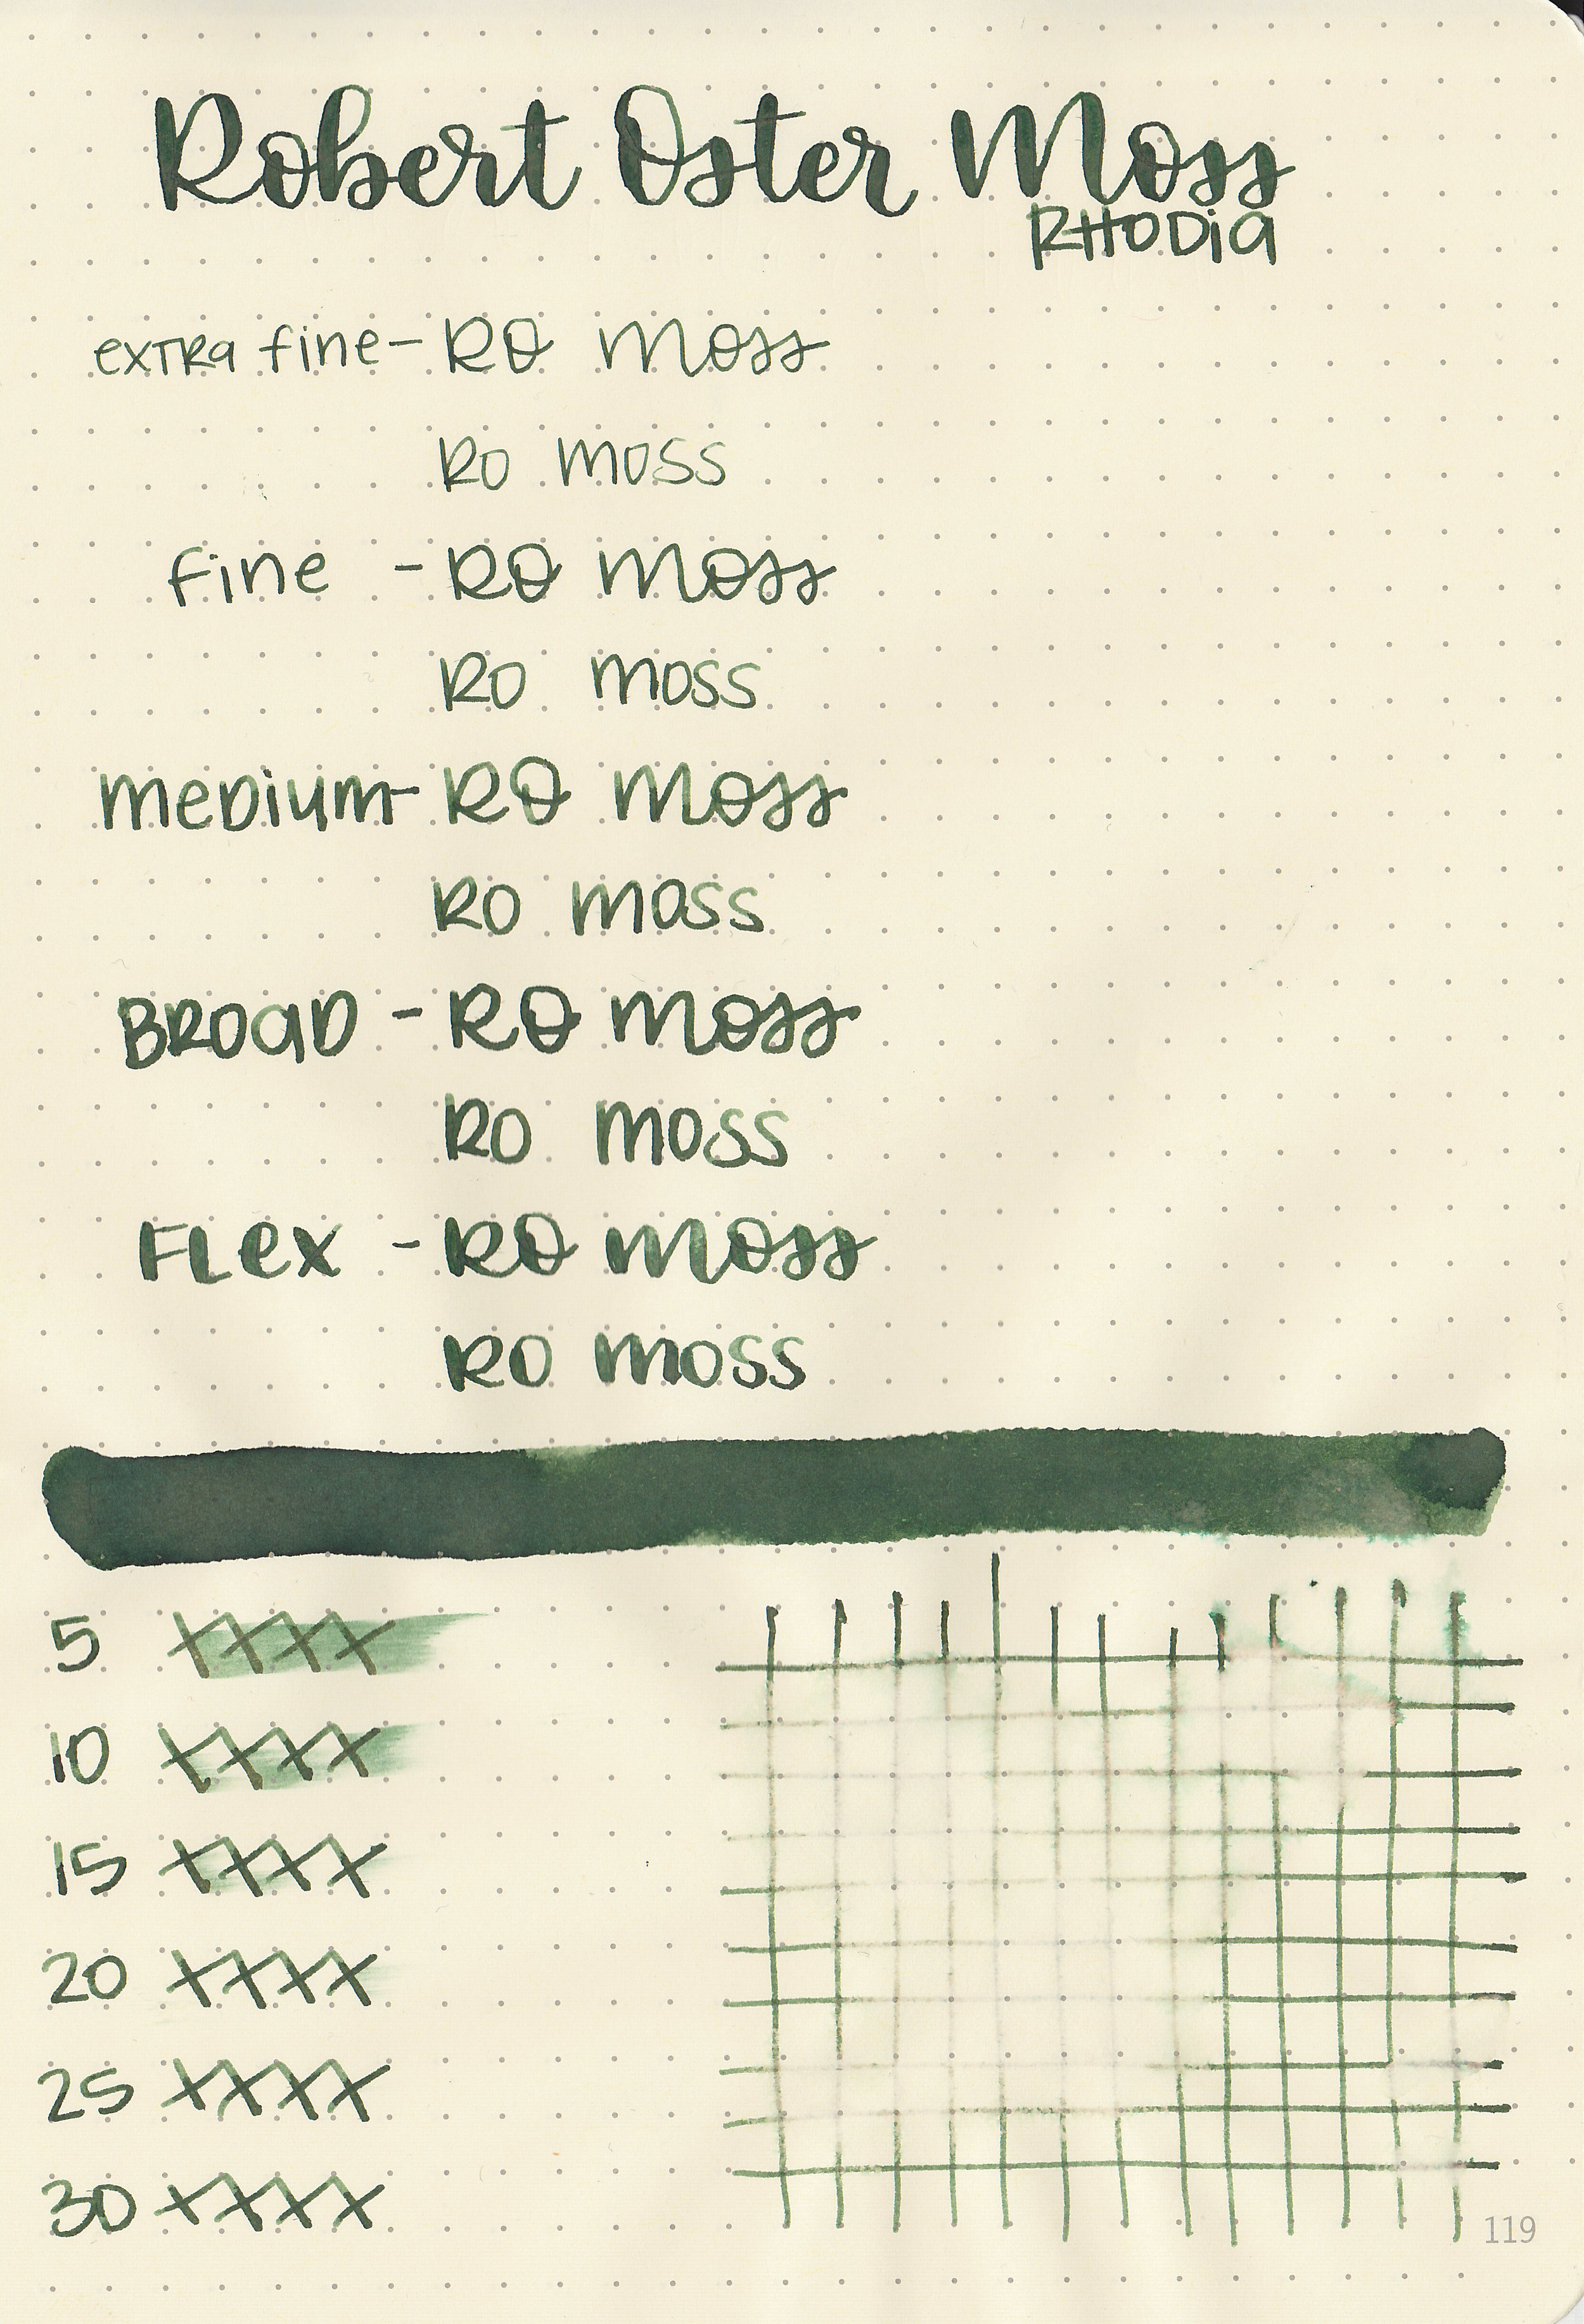 Robert Oster Moss
RHODia
exTRa fine - RO Moss
RO moss
fine - RO Moss
RO moss
meDium - RO Moss
RO moss
BROaD - RO Moss
RO moss
FLex - RO Moss
RO moss
5 xxxx
10 xxxx
15 xxxx
20 xxxx
25 xxxx
30 xxxx
119